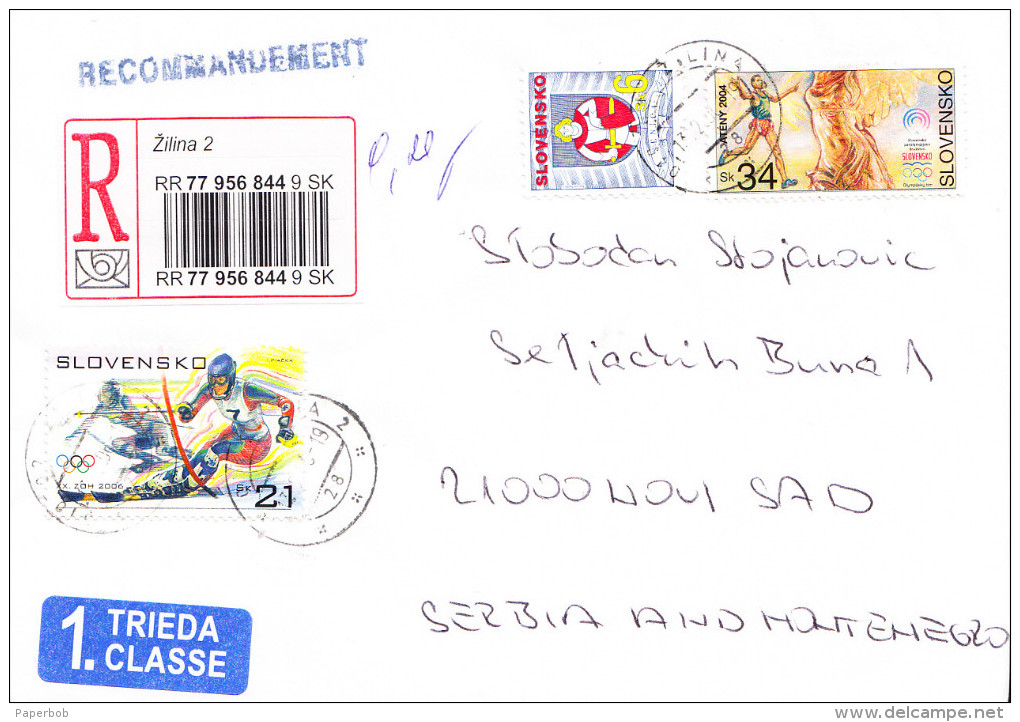 RECOMMANDEMENT
R
Žilina 2
RR 77 956 844 9 SK
RR 77 956 844 9 SK
SLOVENSKO
6 Sk
ATÉNY 2004
Sk 34
SLOVENSKO
SLOVENSKO
Slobodan Stojanovic
Seljackih Buna 1
21000 NOVI SAD
SERBIA AND MONTENEGRO
SLOVENSKO
XX. ZOH 2006
Sk 21
1. TRIEDA
CLASSE
Paperbob
delcampe.net